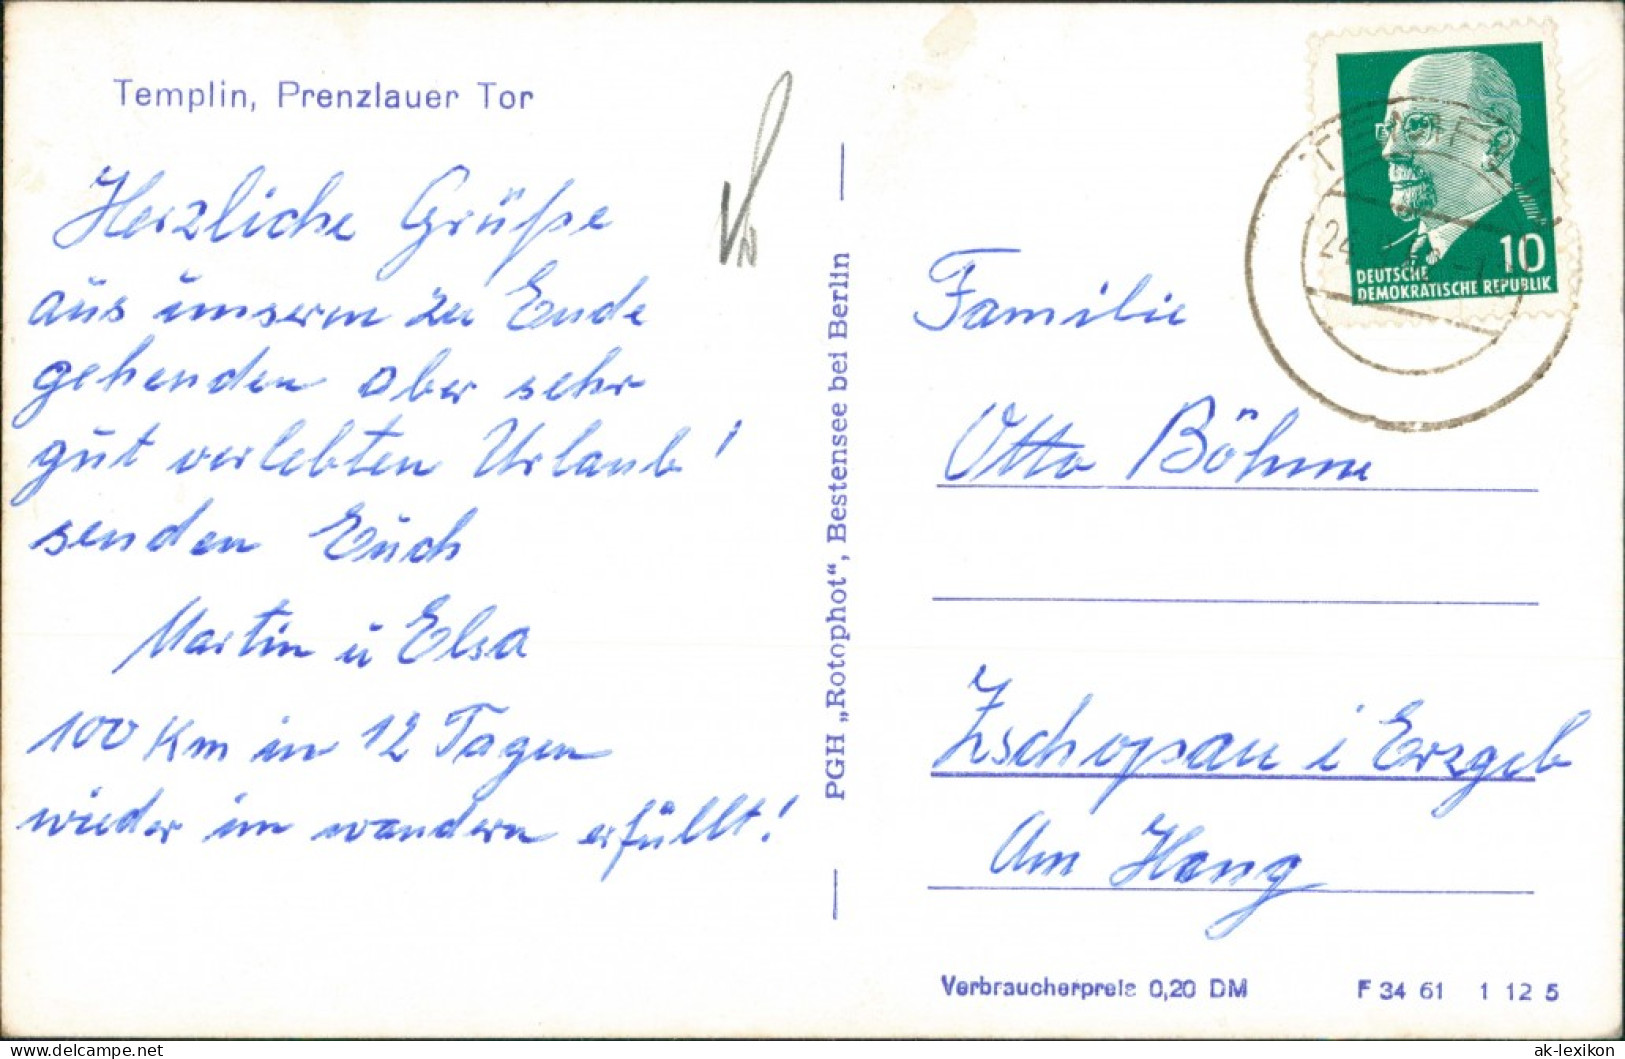 Templin, Prenzlauer Tor
Herzliche Grüße
aus unserm zu Ende
gehenden aber sehr
gut verlebten Urlaub!
senden Euch
Martin u Elsa
100 Km in 12 Tagen
wieder im wandern erfüllt!
PGH „Rotophot“, Bestensee bei Berlin
10
DEUTSCHE
DEMOKRATISCHE REPUBLIK
TEMPLIN
24.
Familie
Otto Böhme
Zschopau i Erzgeb
Am Hang
Verbraucherpreis 0,20 DM F 34 61 1 12 5
hippostcard.com